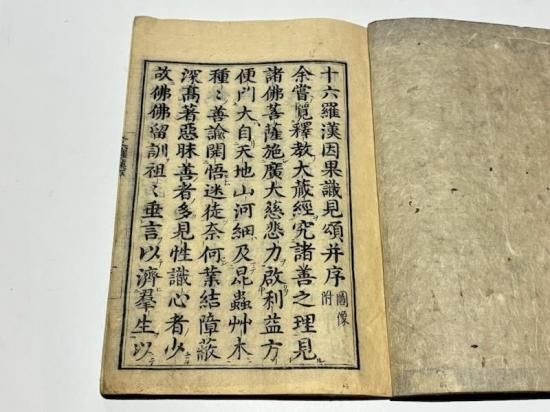 十六羅漢因果識見頌并序 圖像附
余嘗覽釋教大藏經究諸善之理見
諸佛菩薩施廣大慈悲力啟利益方
便門大自天地山河細及昆蟲艸木
種〻善諭開悟迷徒柰何業結障蔽
深高著惡昧善者多見性識心者少
故佛佛留訓祖〻垂言以濟羣生以